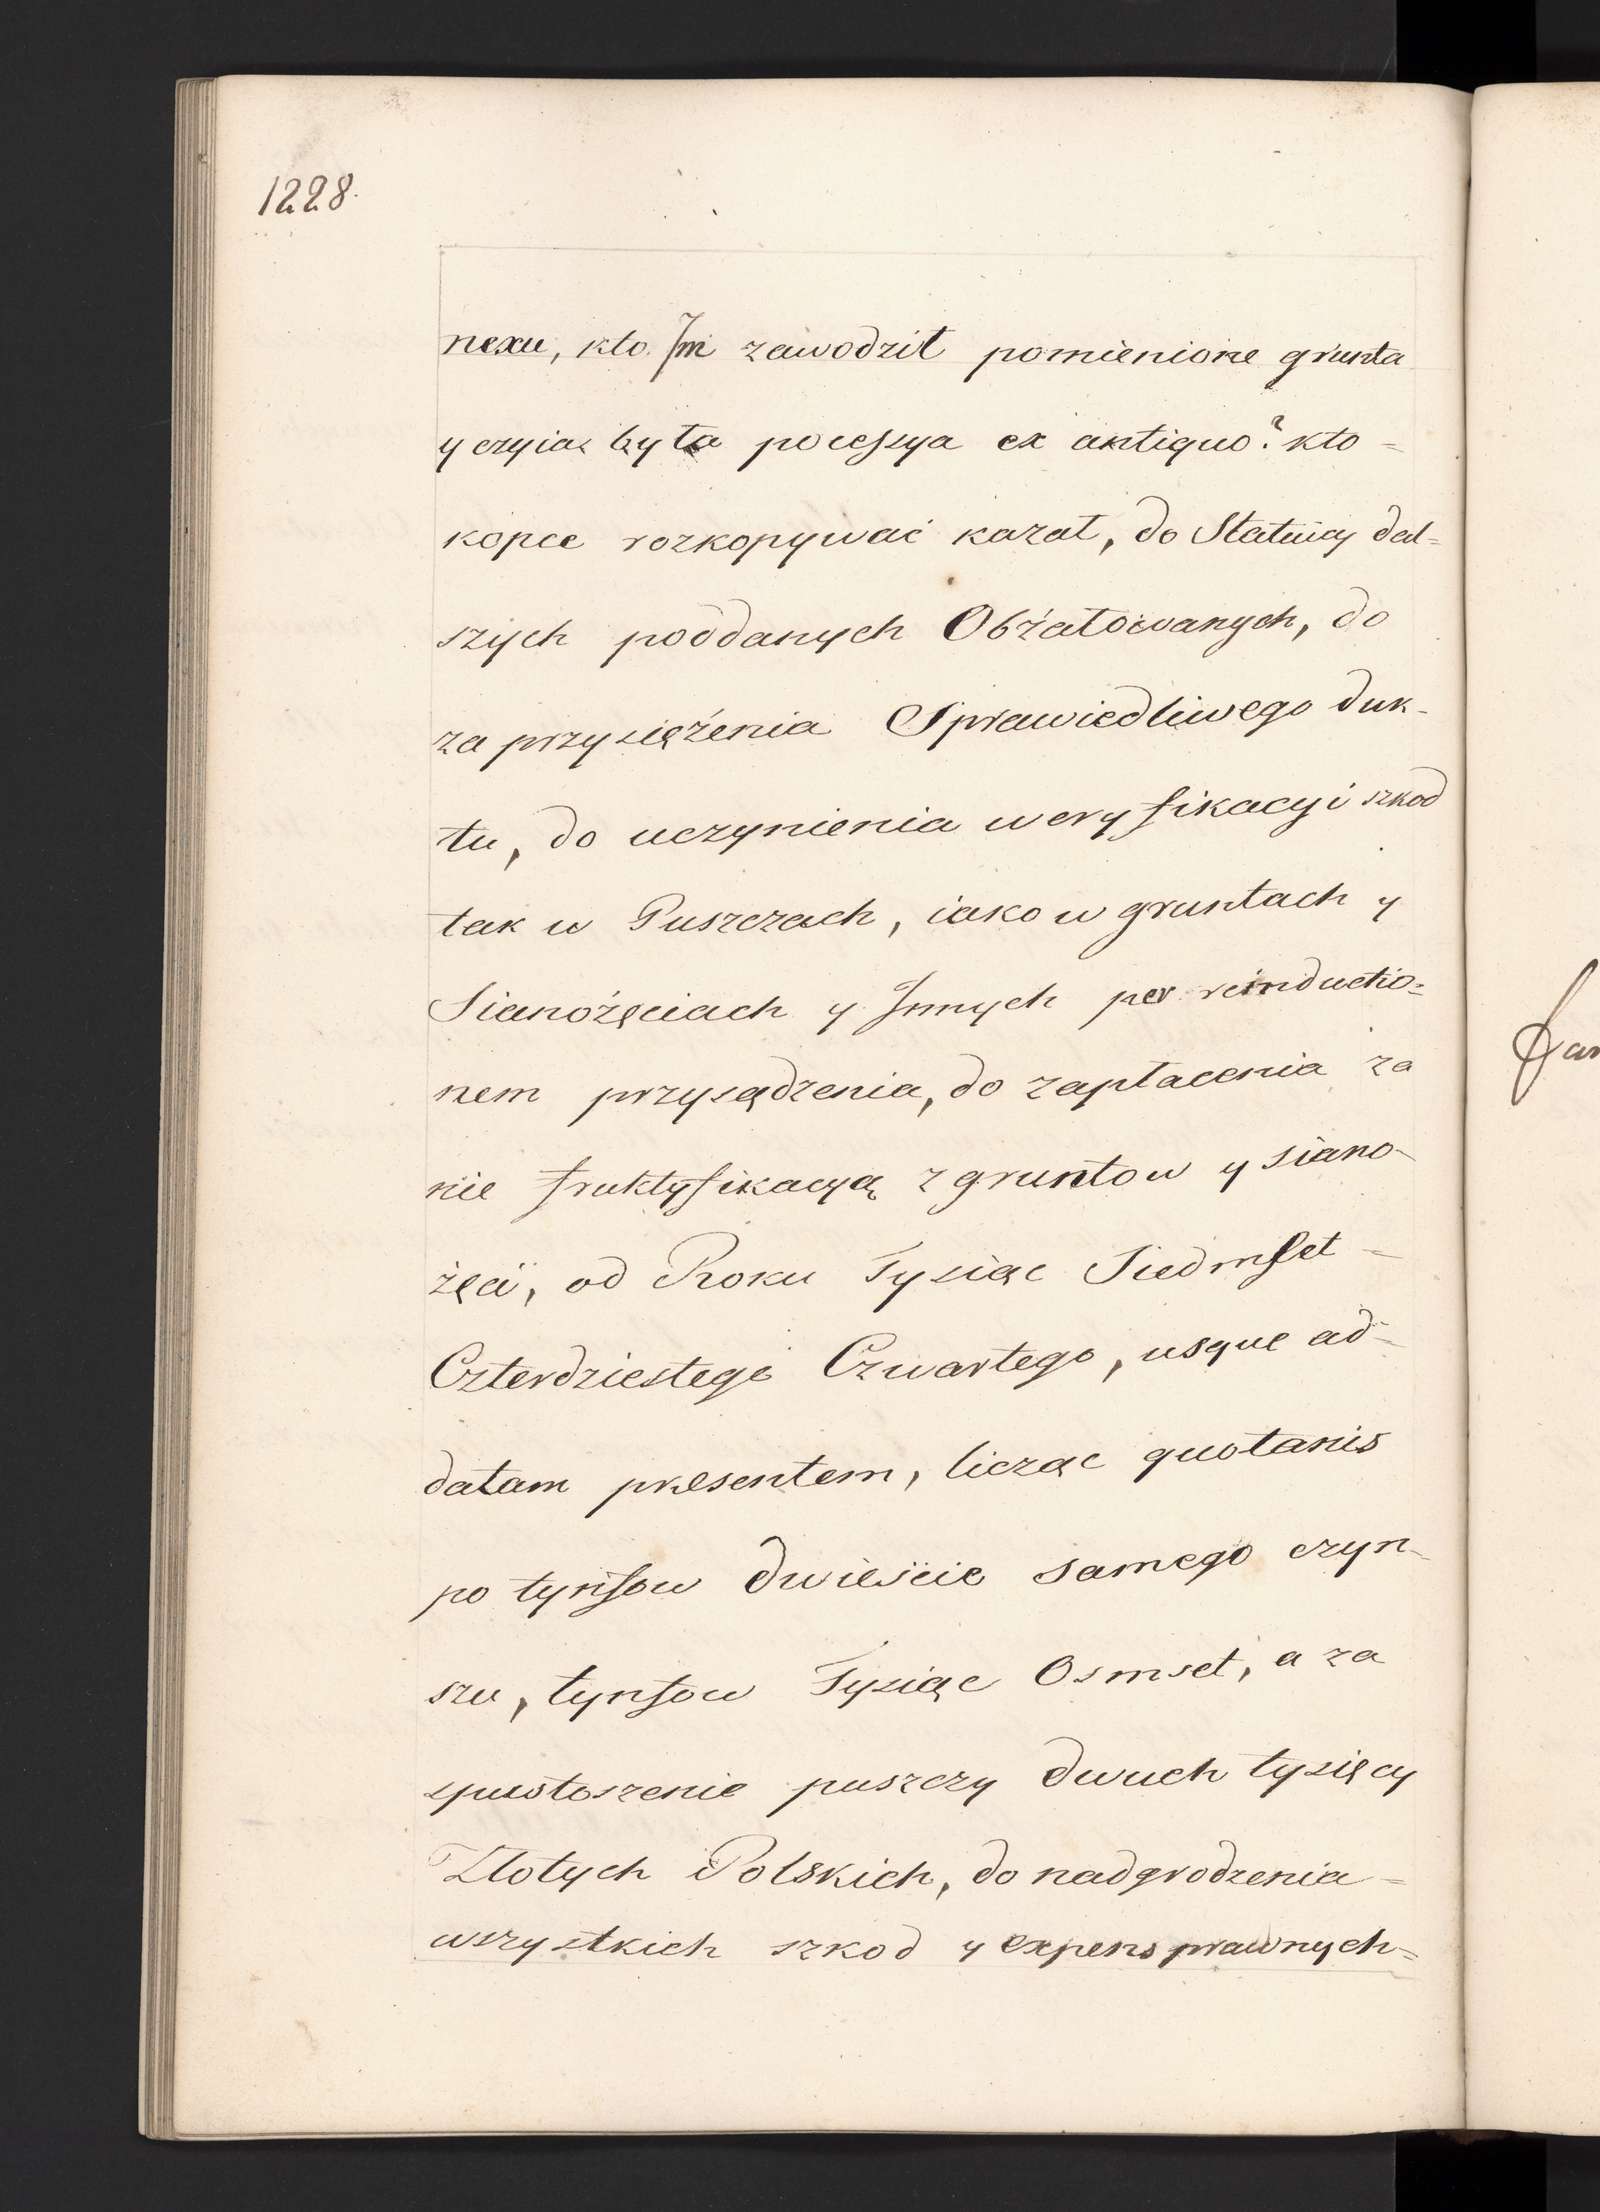 1228.
nexu, kto Jm zawodził pomienione grunta
y czyia była pocessya ex antiquo? kto =
kopce rozkopywać kazał, do Statuicy dal=
szych poddanych Obżałowanych, do
zaprzysiężenia Sprawiedliwego duk-
tu, do uczynienia weryfikacyi szkod
tak w Puszczach, iako w gruntach y
Sianożęciach y Innych per reinductio=
nem przysądzenia, do zapłacenia za
nie fruktyfikacyą z gruntow y siano-
żęci, od Roku Tysiąc Siedmset =
Czterdziestego Czwartego, usque ad =
datam presentem, licząc quotanis
po tynfow dwieście samego czyn-
szu, tynfow Tysiąc Osmset, a za
spustoszenie puszczy dwuch tysięcy
Złotych Polskich, do nadgrodzenia =
wszystkich szkod y expens prawnych =